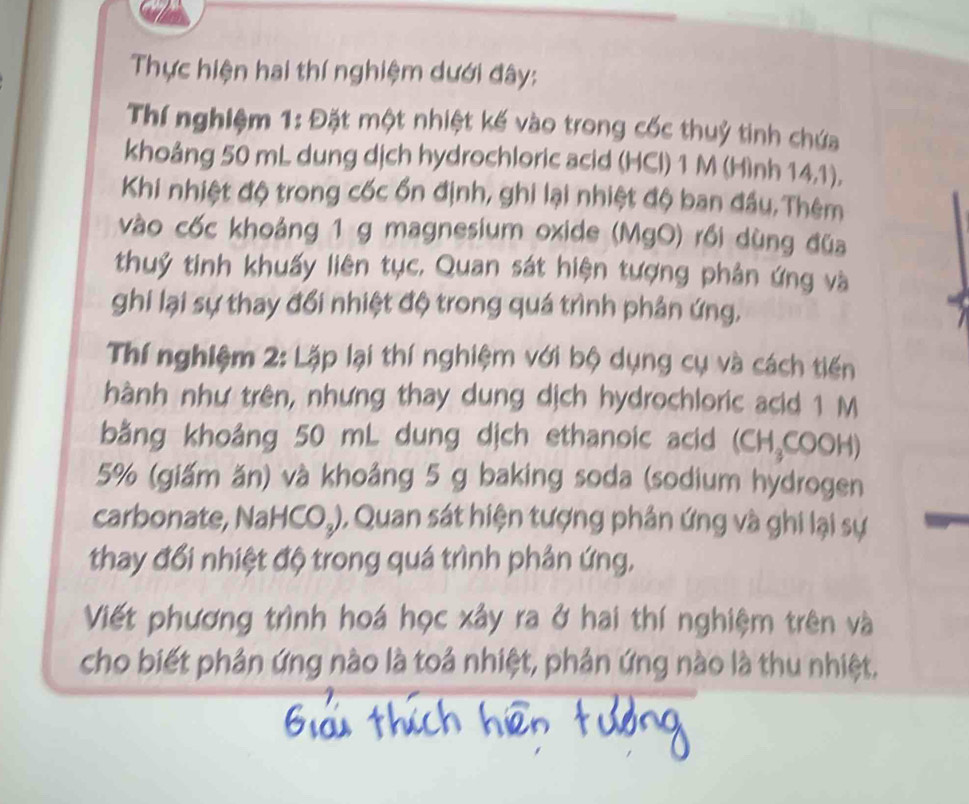 Thực hiện hai thí nghiệm dưới đây:
Thí nghiệm 1: Đặt một nhiệt kế vào trong cốc thuỷ tinh chứa
khoảng 50 mL dung dịch hydrochloric acid (HCl) 1 M (Hình 14.1).
Khi nhiệt độ trong cốc ổn định, ghi lại nhiệt độ ban đầu. Thêm
vào cốc khoảng 1 g magnesium oxide (MgO) rồi dùng đũa
thuỷ tinh khuấy liên tục. Quan sát hiện tượng phản ứng và
ghi lại sự thay đổi nhiệt độ trong quá trình phản ứng.
Thí nghiệm 2: Lặp lại thí nghiệm với bộ dụng cụ và cách tiến
hành như trên, nhưng thay dung dịch hydrochloric acid 1 M
bằng khoảng 50 mL dung dịch ethanoic acid (CH₃COOH)
5% (giấm ăn) và khoảng 5 g baking soda (sodium hydrogen
carbonate, NaHCO₃). Quan sát hiện tượng phản ứng và ghi lại sự
thay đổi nhiệt độ trong quá trình phản ứng.
Viết phương trình hoá học xảy ra ở hai thí nghiệm trên và
cho biết phản ứng nào là toả nhiệt, phản ứng nào là thu nhiệt.
Giải thích hiện tượng